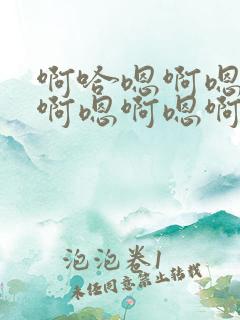 啊哈嗯啊嗯
啊嗯啊嗯啊
泡泡卷1
未经同意禁止转载